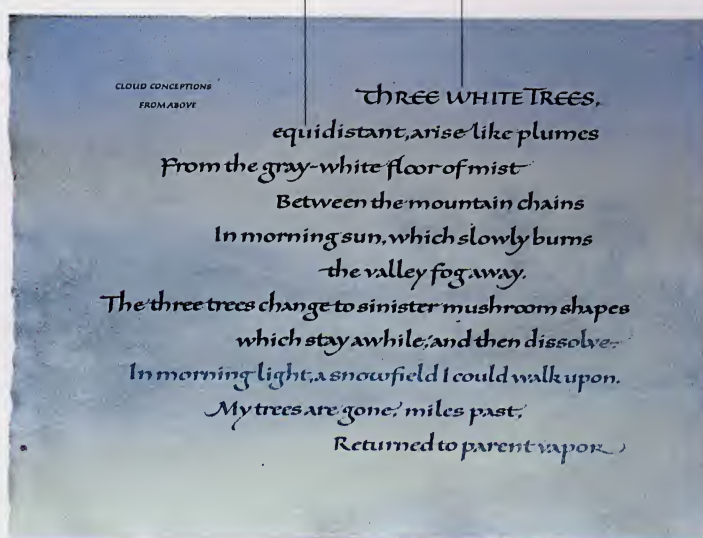 CLOUD CONCEPTIONS
FROM ABOVE
THREE WHITE TREES,
equidistant, arise like plumes
From the gray-white floor of mist
Between the mountain chains
In morning sun, which slowly burns
the valley fog away.
The three trees change to sinister mushroom shapes
which stay awhile, and then dissolve.
In morning light, a snowfield I could walk upon.
My trees are gone, miles past,
Returned to parent vapor